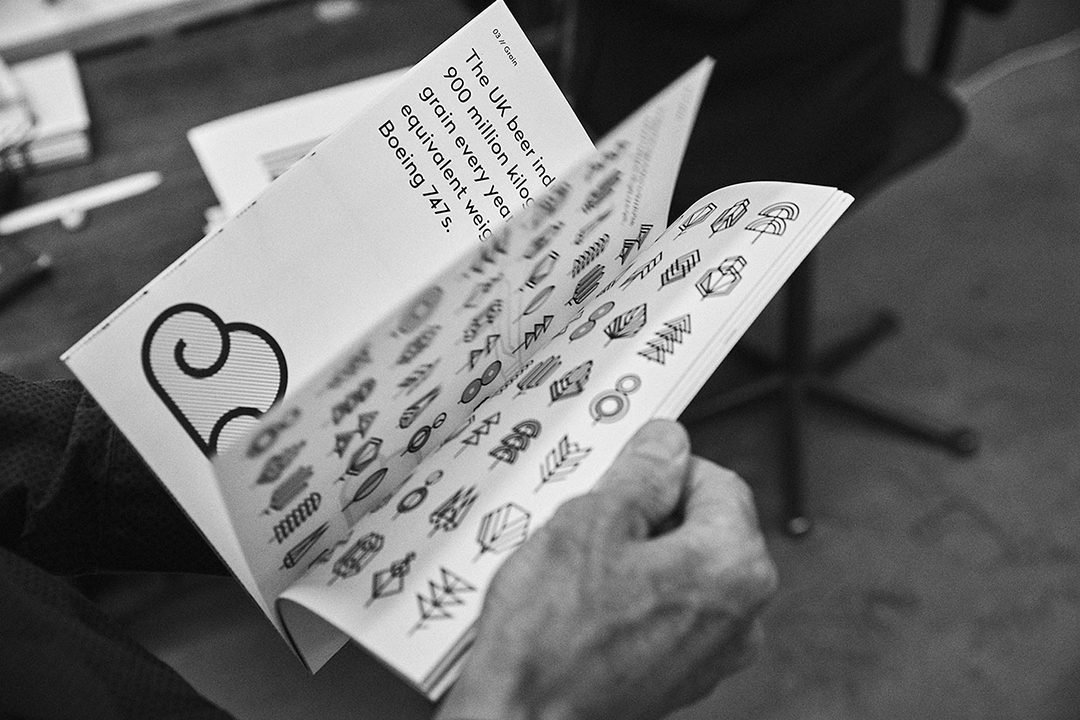 03 // Grain
The UK beer ind
900 million kilog
grain every yea
equivalent weig
Boeing 747s.